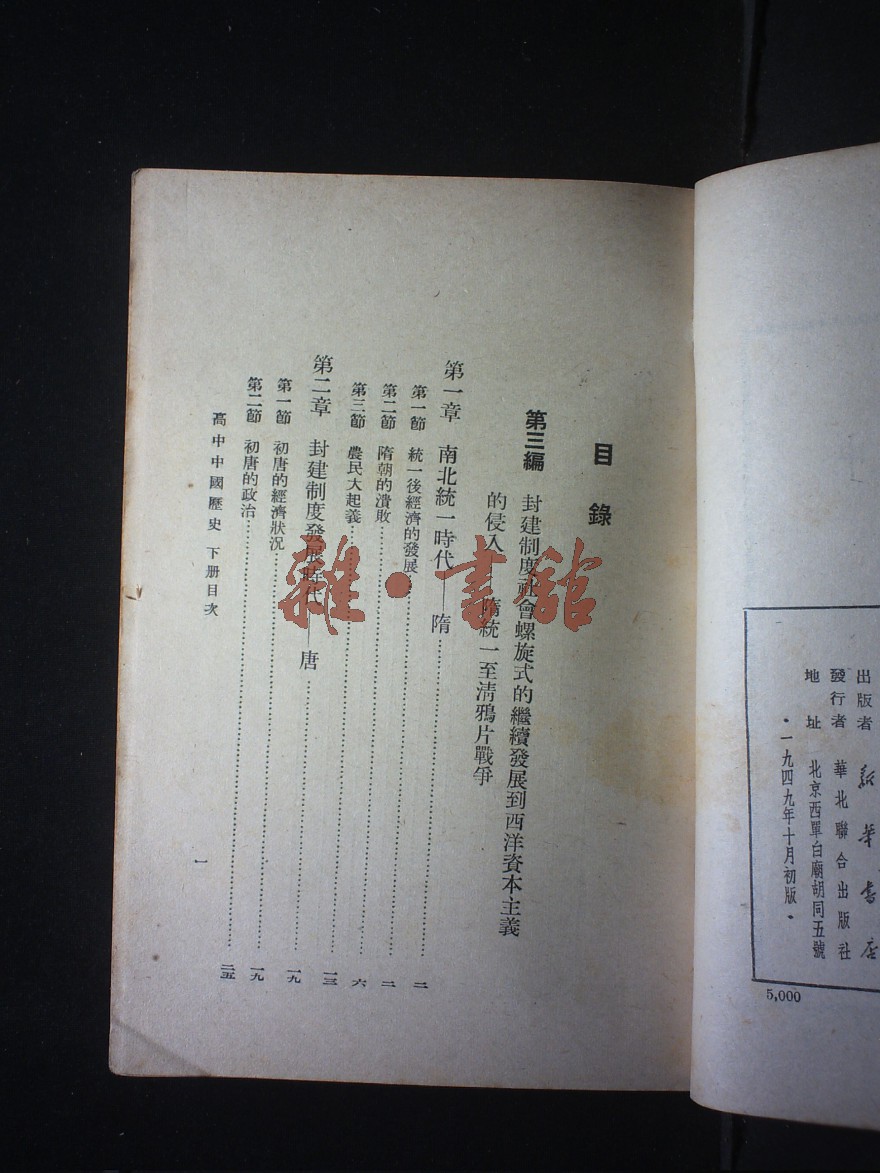 出版者 新華書店
發行者 華北聯合出版社
地址 北京西單白廟胡同五號
·一九四九年十月初版·
5,000
目錄
第三編 封建制度社會螺旋式的繼續發展到西洋資本主義
的侵入——隋統一至清鴉片戰爭
第一章 南北統一時代——隋……二
第一節 統一後經濟的發展……二
第二節 隋朝的潰敗……六
第三節 農民大起義……一三
第二章 封建制度發展時代——唐……一九
第一節 初唐的經濟狀況……一九
第二節 初唐的政治……二五
高中中國歷史 下册目次
一
雜·書館